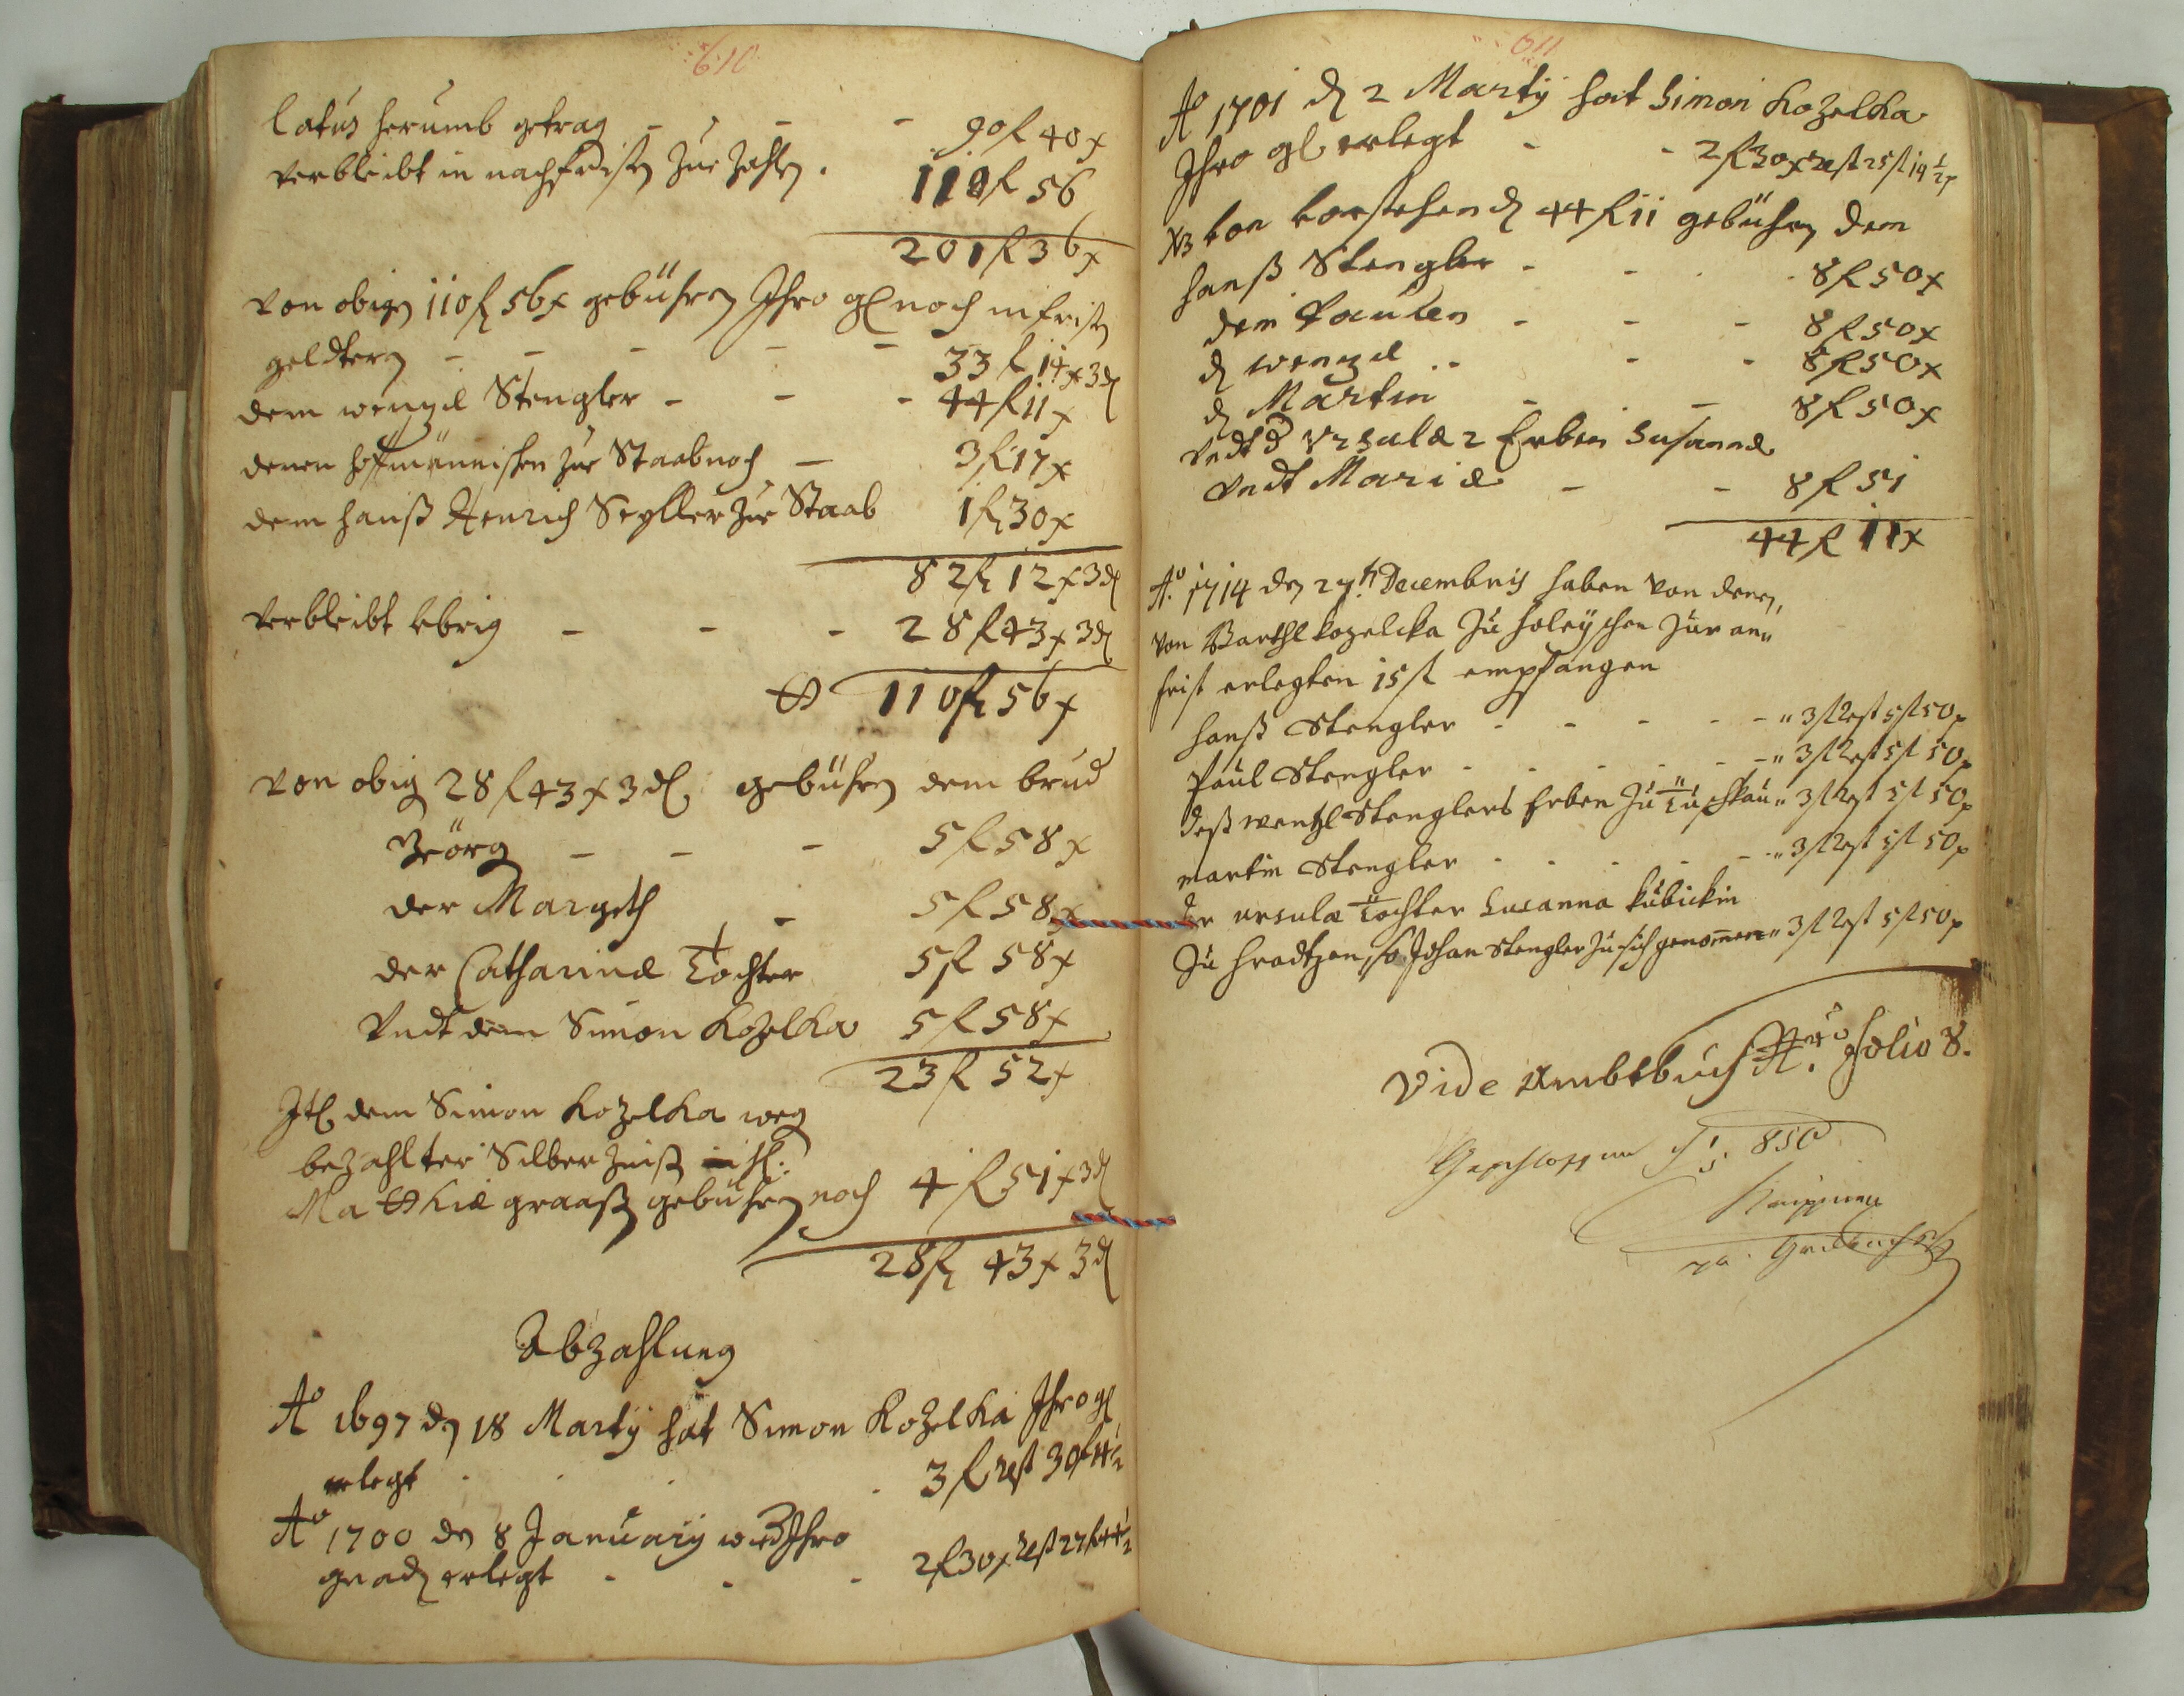 610
latus herumb getrag - - - - 90 fl 40 x
Verbleibt in nachfristen Zue Zahlen . 110 fl 56
201 fl 36 x
Von obigen 110 fl 56 x gebühren Ihro gl noch in frist
geldtern - - - - - 33 fl 14 x 3 d
dem wenzel Stengler - - - 44 fl 11 x
denen hoffmännischen Zue Staab noch - 3 fl 17 x
dem Hanß Henrich Seyller Zue Staab 1 fl 30 x
82 fl 12 x 3 d
Verbleibt Ebrig - - - 28 fl 43 x 3 d
110 fl 56 x
Von obig 28 fl 43 x 3 d gebühren dem brud
Geörg - - - 5 fl 58 x
der Margeth - 5 fl 58 x
der Catharinæ Tochter 5 fl 58 x
Undt dem Simon Kozelka 5 fl 58 x
23 fl 52 x
Itl dem Simon Kozelka weg
bezahlter Silber Zinß
Matthiæ gebühren noch 4 fl 51 x 3 d
28 fl 43 x 3 d
Abzahlung
Ao 1697 den 18 Marty hat Simon Kozelka Ihro gl
erlegt . . . . 3 fl rest 30 fl 14 1/2
Ao 1700 den 8 January wied Ihro
gnad erlegt - - - 2 fl 30 x Rest 27 fl 44 1/2
611
Ao 1701 den 2 Marty hat Simon Kozelka
Ihro gl erlegt - - 2 fl 30 x rest 25 fl 14 1/2 x
NB von vorstehend 44 fl 11 gebühren dem
hanß Stengler - - . . 8 fl 50 x
dem Paulen - - - 8 fl 50 x
d wenzel - - - 8 fl 50 x
d Martin - - 8 fl 50 x
Undt d Ursulæ 2 Erben Susannæ
Undt Mariæ - - 8 fl 51
44 fl 11 x
Ao. 1714 den 27t Decembris haben von denen,
von Barthl Kozelcka Zu holeyschen Zur an"
frist erlegten 15 fl empfangen
Hanß Stengler - - - - - " 3 fl Rest 5 fl 50 x
Paul Stengler - - - - - " 3 fl Rest 5 fl 50 x
deß wentzl Stenglers Erben Zu Tuschkau " 3 fl Rest 5 fl 50 x
Martin Stengler - - - - - " 3 fl Rest 5 fl 50 x
der Ursula Tochter Susanna Kubickin
Zu Hradtzen, so Johan Stengler Zu sich genom̄en " 3 fl Rest 5 fl 50 x
Vide Ambtbuch folio 8.
Geschlossen 850